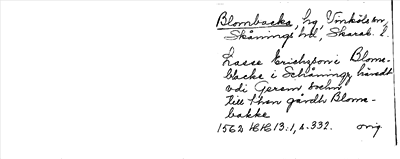 Blombacka, hg, Vinköls sn,
Skånings hd, Skarab. l.
Lasse Erichsson i Blome-
backe i Schåningz häredt
vdi Gerem sochn
till then gårdh Blome-
bakke
1562 HH 13:1, s. 332. orig.